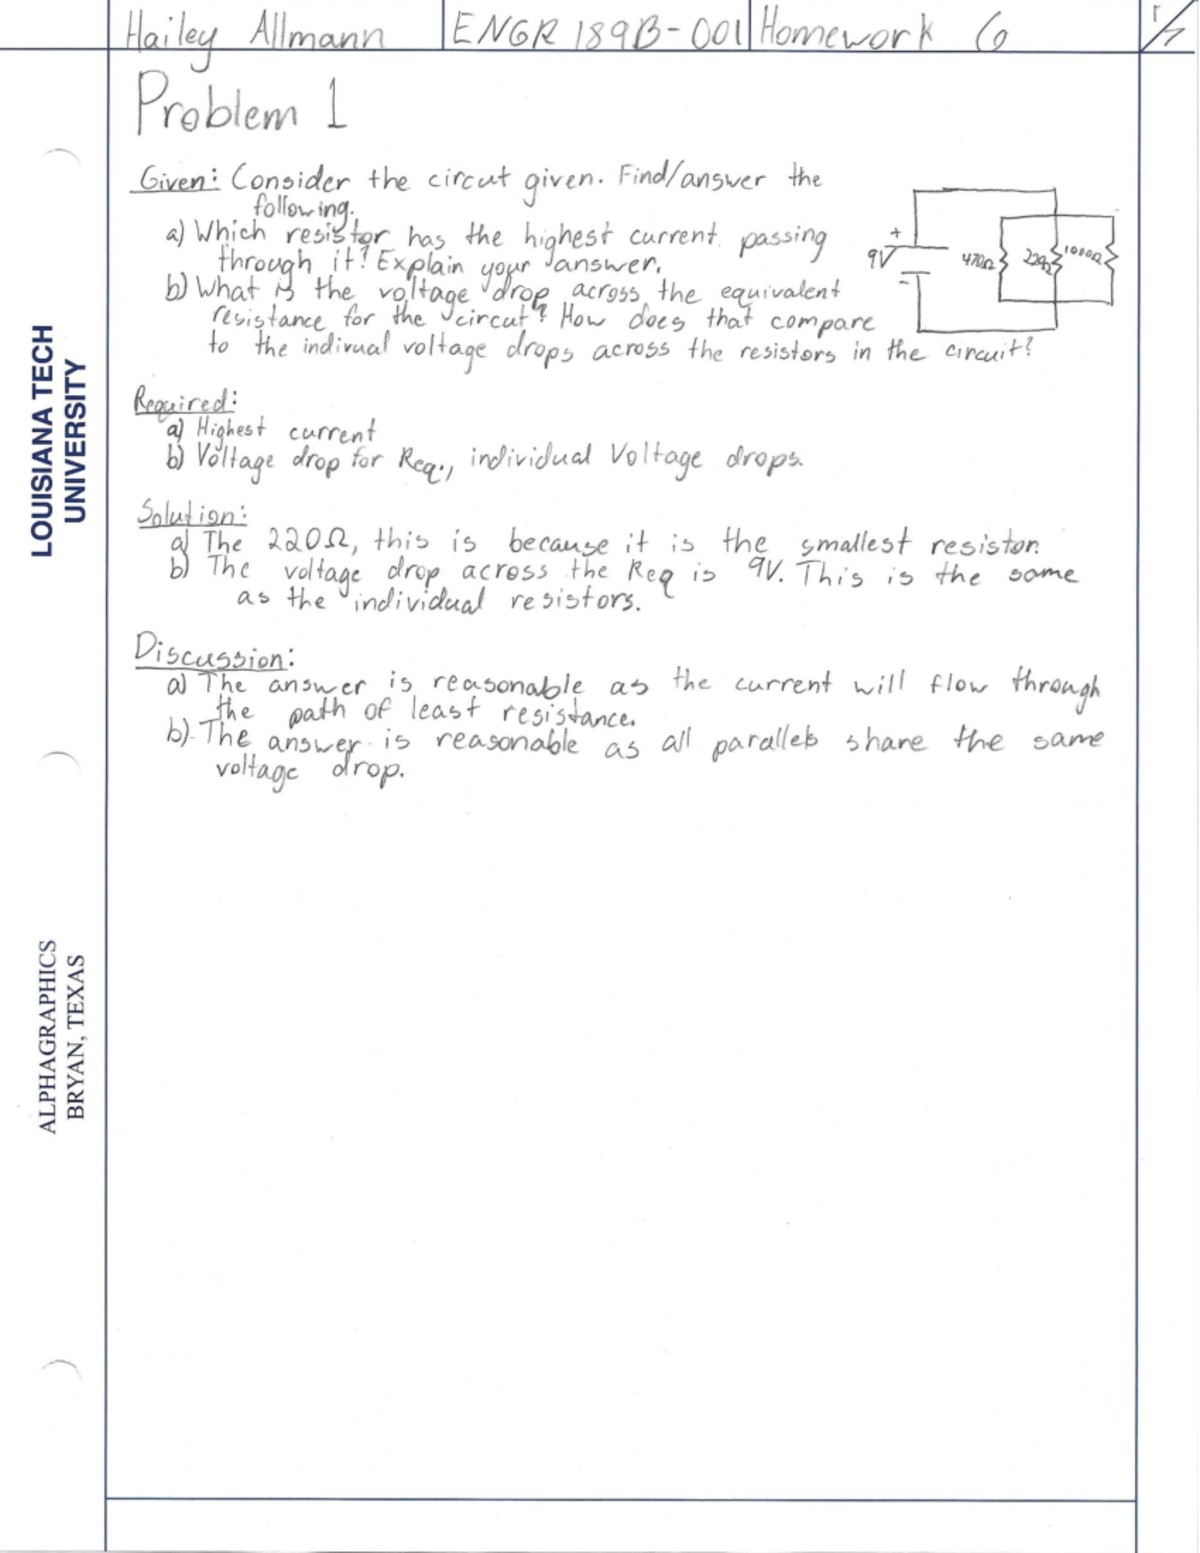 Hailey Allmann ENGR 189B-001 Homework 6 1/7
Problem 1
Given: Consider the circut given. Find/answer the
following.
a) Which resistor has the highest current passing
through it? Explain your answer.
b) What is the voltage drop across the equivalent
resistance for the circut? How does that compare
to the indivual voltage drops across the resistors in the circuit?
+
9V
-
470Ω
220Ω
1000Ω
Required:
a) Highest current
b) Voltage drop for Req., individual Voltage drops.
Solution:
a) The 220Ω, this is because it is the smallest resistor.
b) The voltage drop across the Req is 9V. This is the same
as the individual resistors.
Discussion:
a) The answer is reasonable as the current will flow through
the path of least resistance.
b) The answer is reasonable as all parallels share the same
voltage drop.
LOUISIANA TECH
UNIVERSITY
ALPHAGRAPHICS
BRYAN, TEXAS